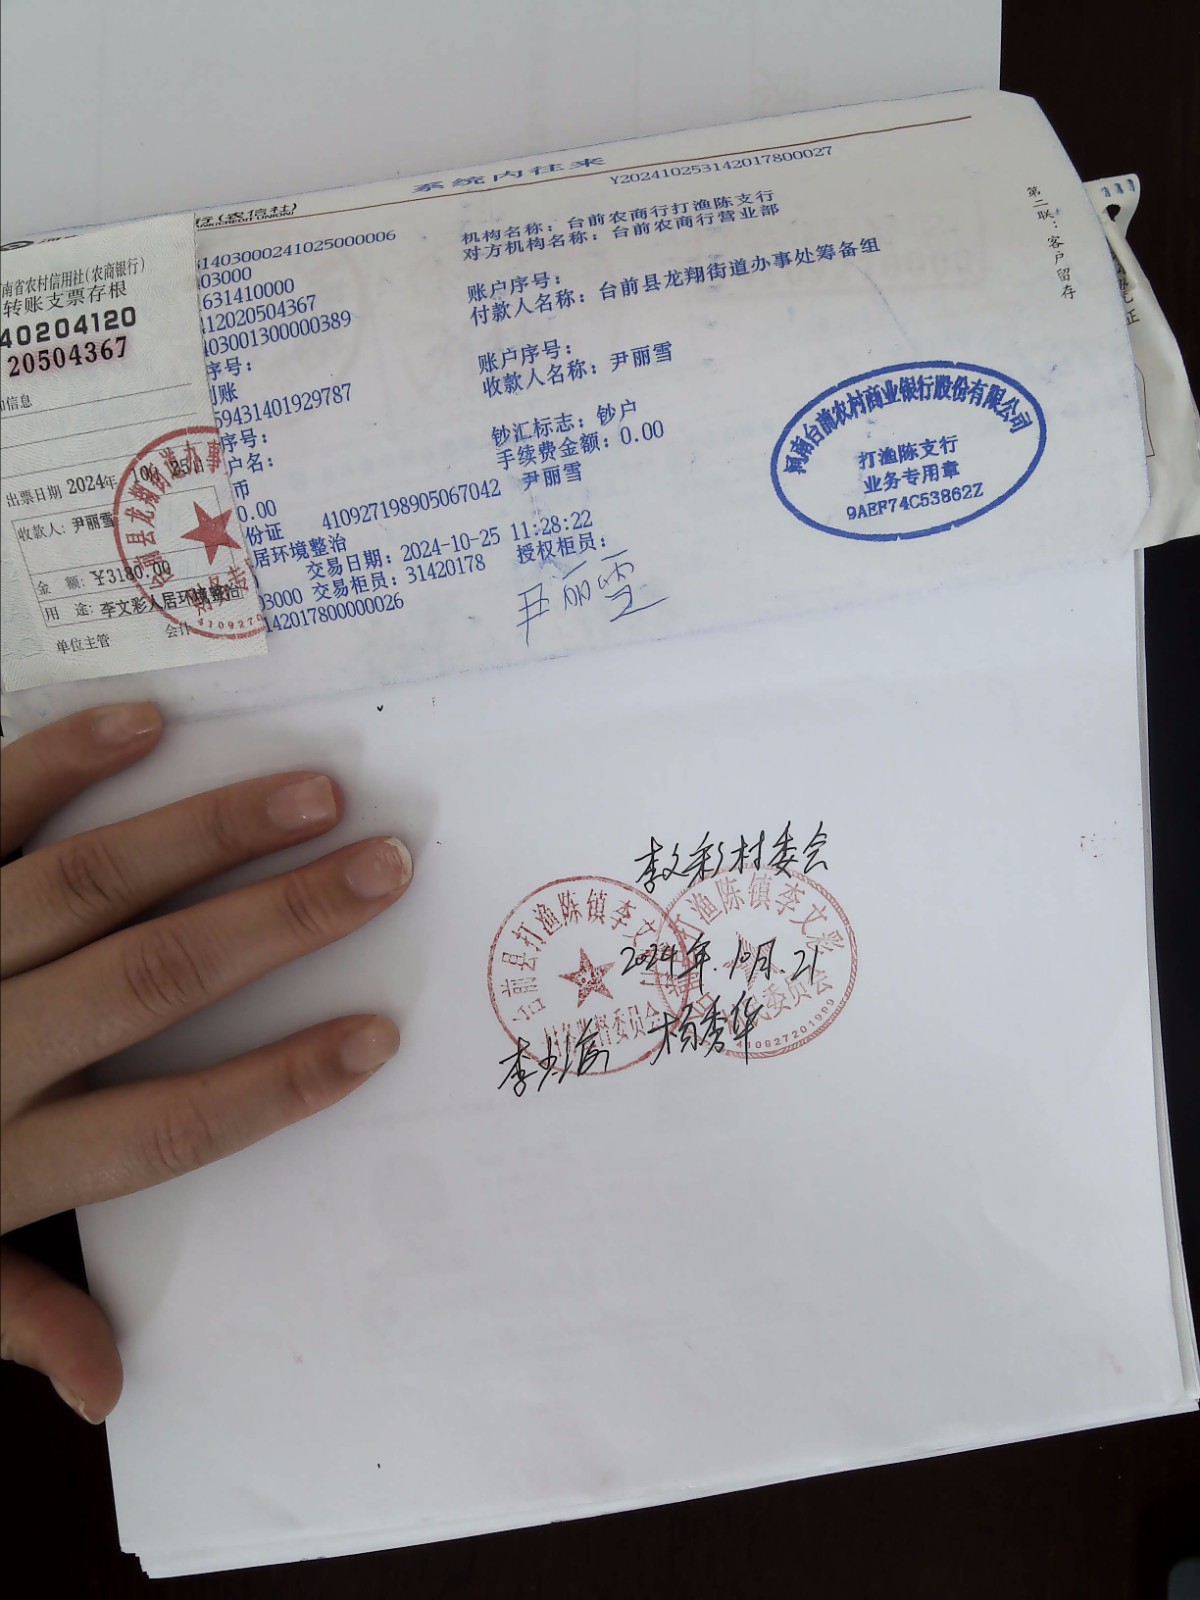 系统内往来
Y202410253142017800027
行(农信社)
第二联：客户留存
1403000241025000006
机构名称：台前农商行打渔陈支行
03000
对方机构名称：台前农商行营业部
631410000
账户序号：
12020504367
付款人名称：台前县龙翔街道办事处筹备组
403001300000389
序号：
账户序号：
账
收款人名称：尹丽雪
59431401929787
序号：
钞汇标志：钞户
户名：
手续费金额：0.00
币
0.00
份证 410927198905067042 尹丽雪
居环境整治
交易日期：2024-10-25 11:28:22
03000 交易柜员：31420178 授权柜员：
142017800000026
尹丽雪
河南台前农村商业银行股份有限公司
打渔陈支行
业务专用章
9AEF74C53862Z
南省农村信用社(农商银行)
转账支票存根
40204120
20504367
加信息
出票日期 2024年 10月 25日
收款人：尹丽雪
金 额：¥3180.00
用 途：李文彩人居环境整治
单位主管 会计
李文彩村委会
2024年.10月.21
杨秀华
台前县打渔陈镇李文
村务监督委员会
打渔陈镇李文彩
村民委员会